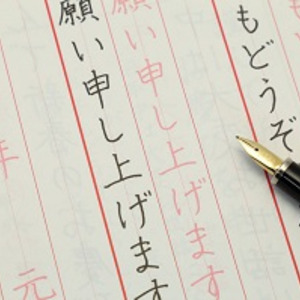 もどうぞ
願い申し上げます
願い申し上げます
年
元